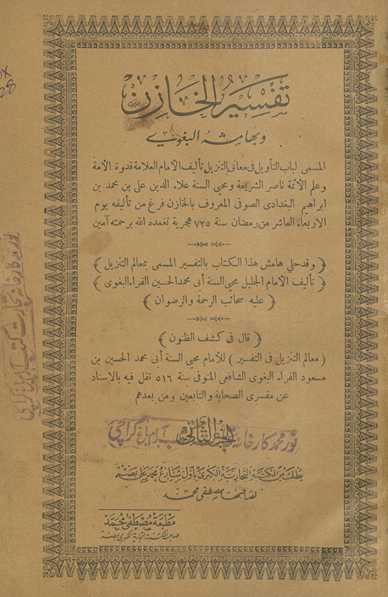 تفسير الخازن
وبهامشه البغوي
المسمى لباب التأويل فى معانى التنزيل تأليف الامام العلامة قدوة الأمة
وعلم الأئمة ناصر الشريعة ومحيى السنة علاء الدين على بن محمد بن
ابراهيم البغدادى الصوفى المعروف بالخازن فرغ من تأليفه يوم
الاربعاء العاشر من رمضان سنة ٧٢٥ هجرية تغمده الله برحمته آمين
( وقد حلى هامش هذا الكتاب بالتفسير المسمى بمعالم التنزيل )
( تأليف الامام الجليل محيى السنة أبى محمد الحسين الفراء البغوى )
( عليه سحائب الرحمة والرضوان )
( قال فى كشف الظنون )
( معالم التنزيل فى التفسير ) للامام محيى السنة أبى محمد الحسين بن
مسعود الفراء البغوى الشافعى المتوفى سنة ٥١٦ نقل فيه بالاسناد
عن مفسرى الصحابة والتابعين ومن بعدهم
الجزء الثانى
نور محمد كارخانه آرام باغ كراچى
يطلب من المكتبة التجارية الكبرى بأول شارع محمد على بمصر
لصاحبها مصطفى محمد
مطبعة مصطفى محمد
صاحب المكتبة التجارية الكبرى بمصر